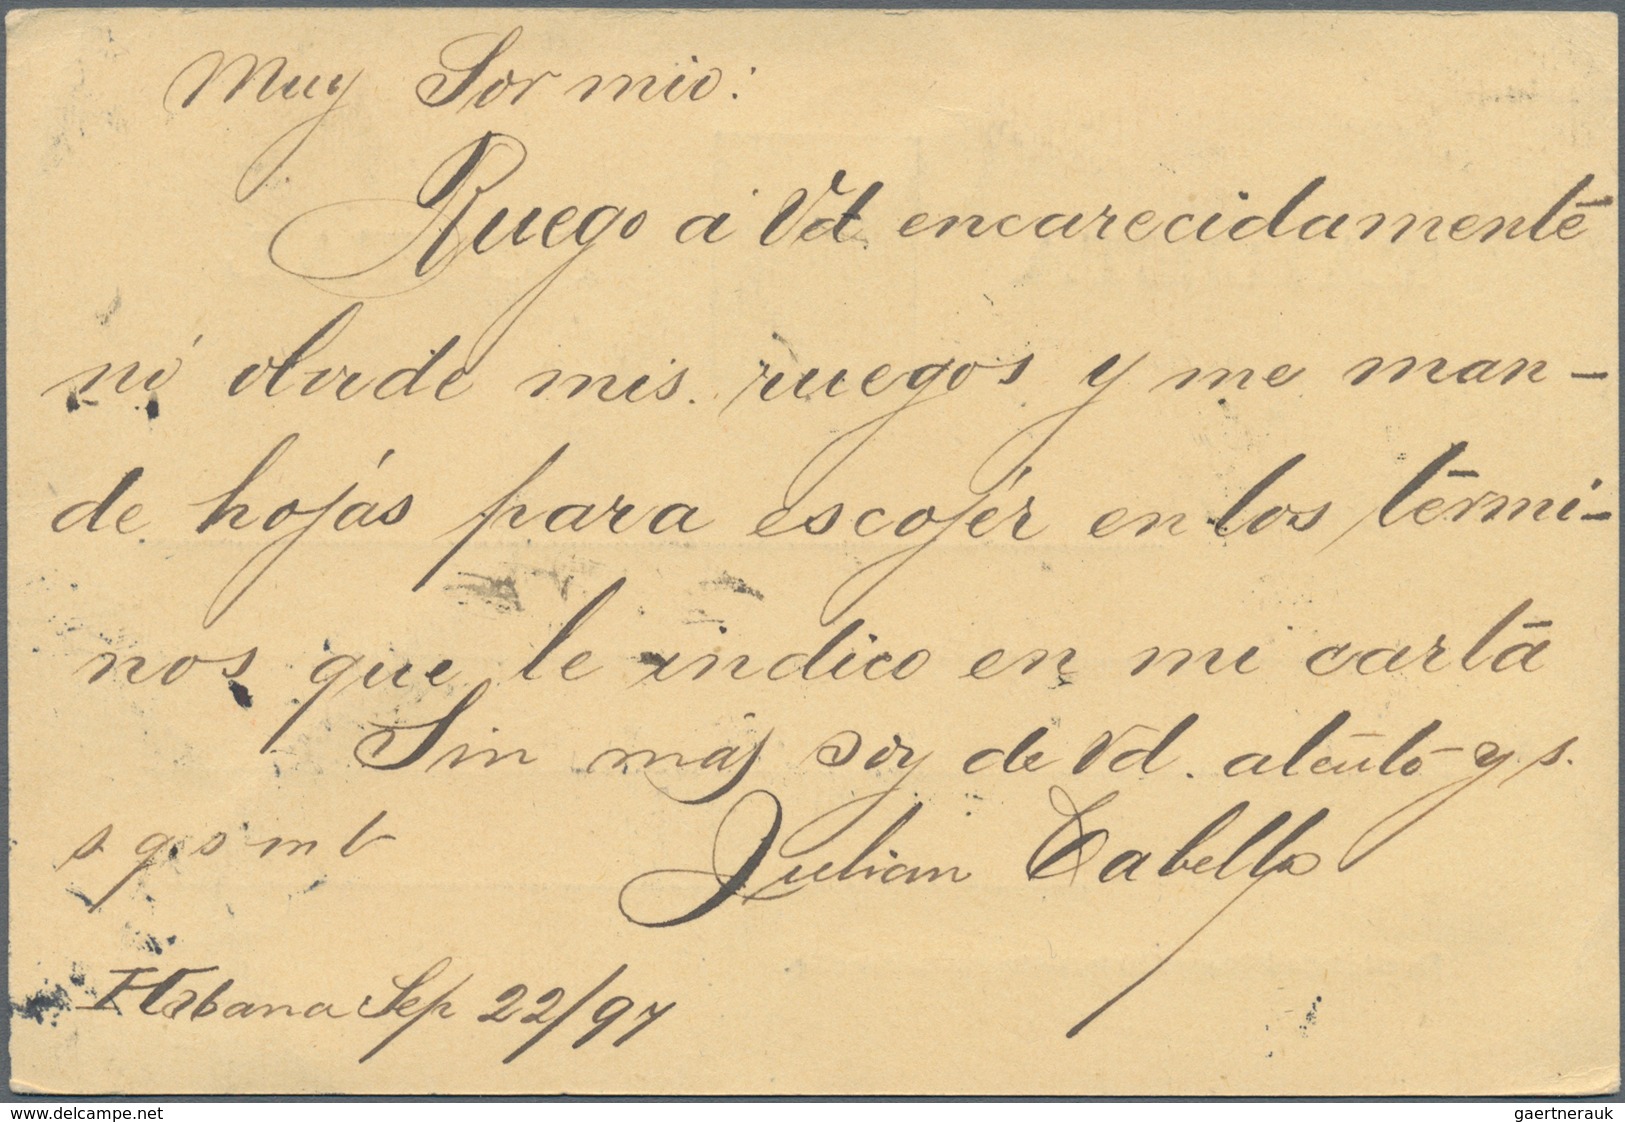 Muy Sor mio:
Ruego á Vd encarecidamente
no olvide mis ruegos y me man-
de hojás para escojér en los termi-
nos que le indico en mi carta
Sin más soy de Vd. atento y s.
s q s m b
Julian Cabello
Habana Sep 22/97
www.delcampe.net
gaertnerauk